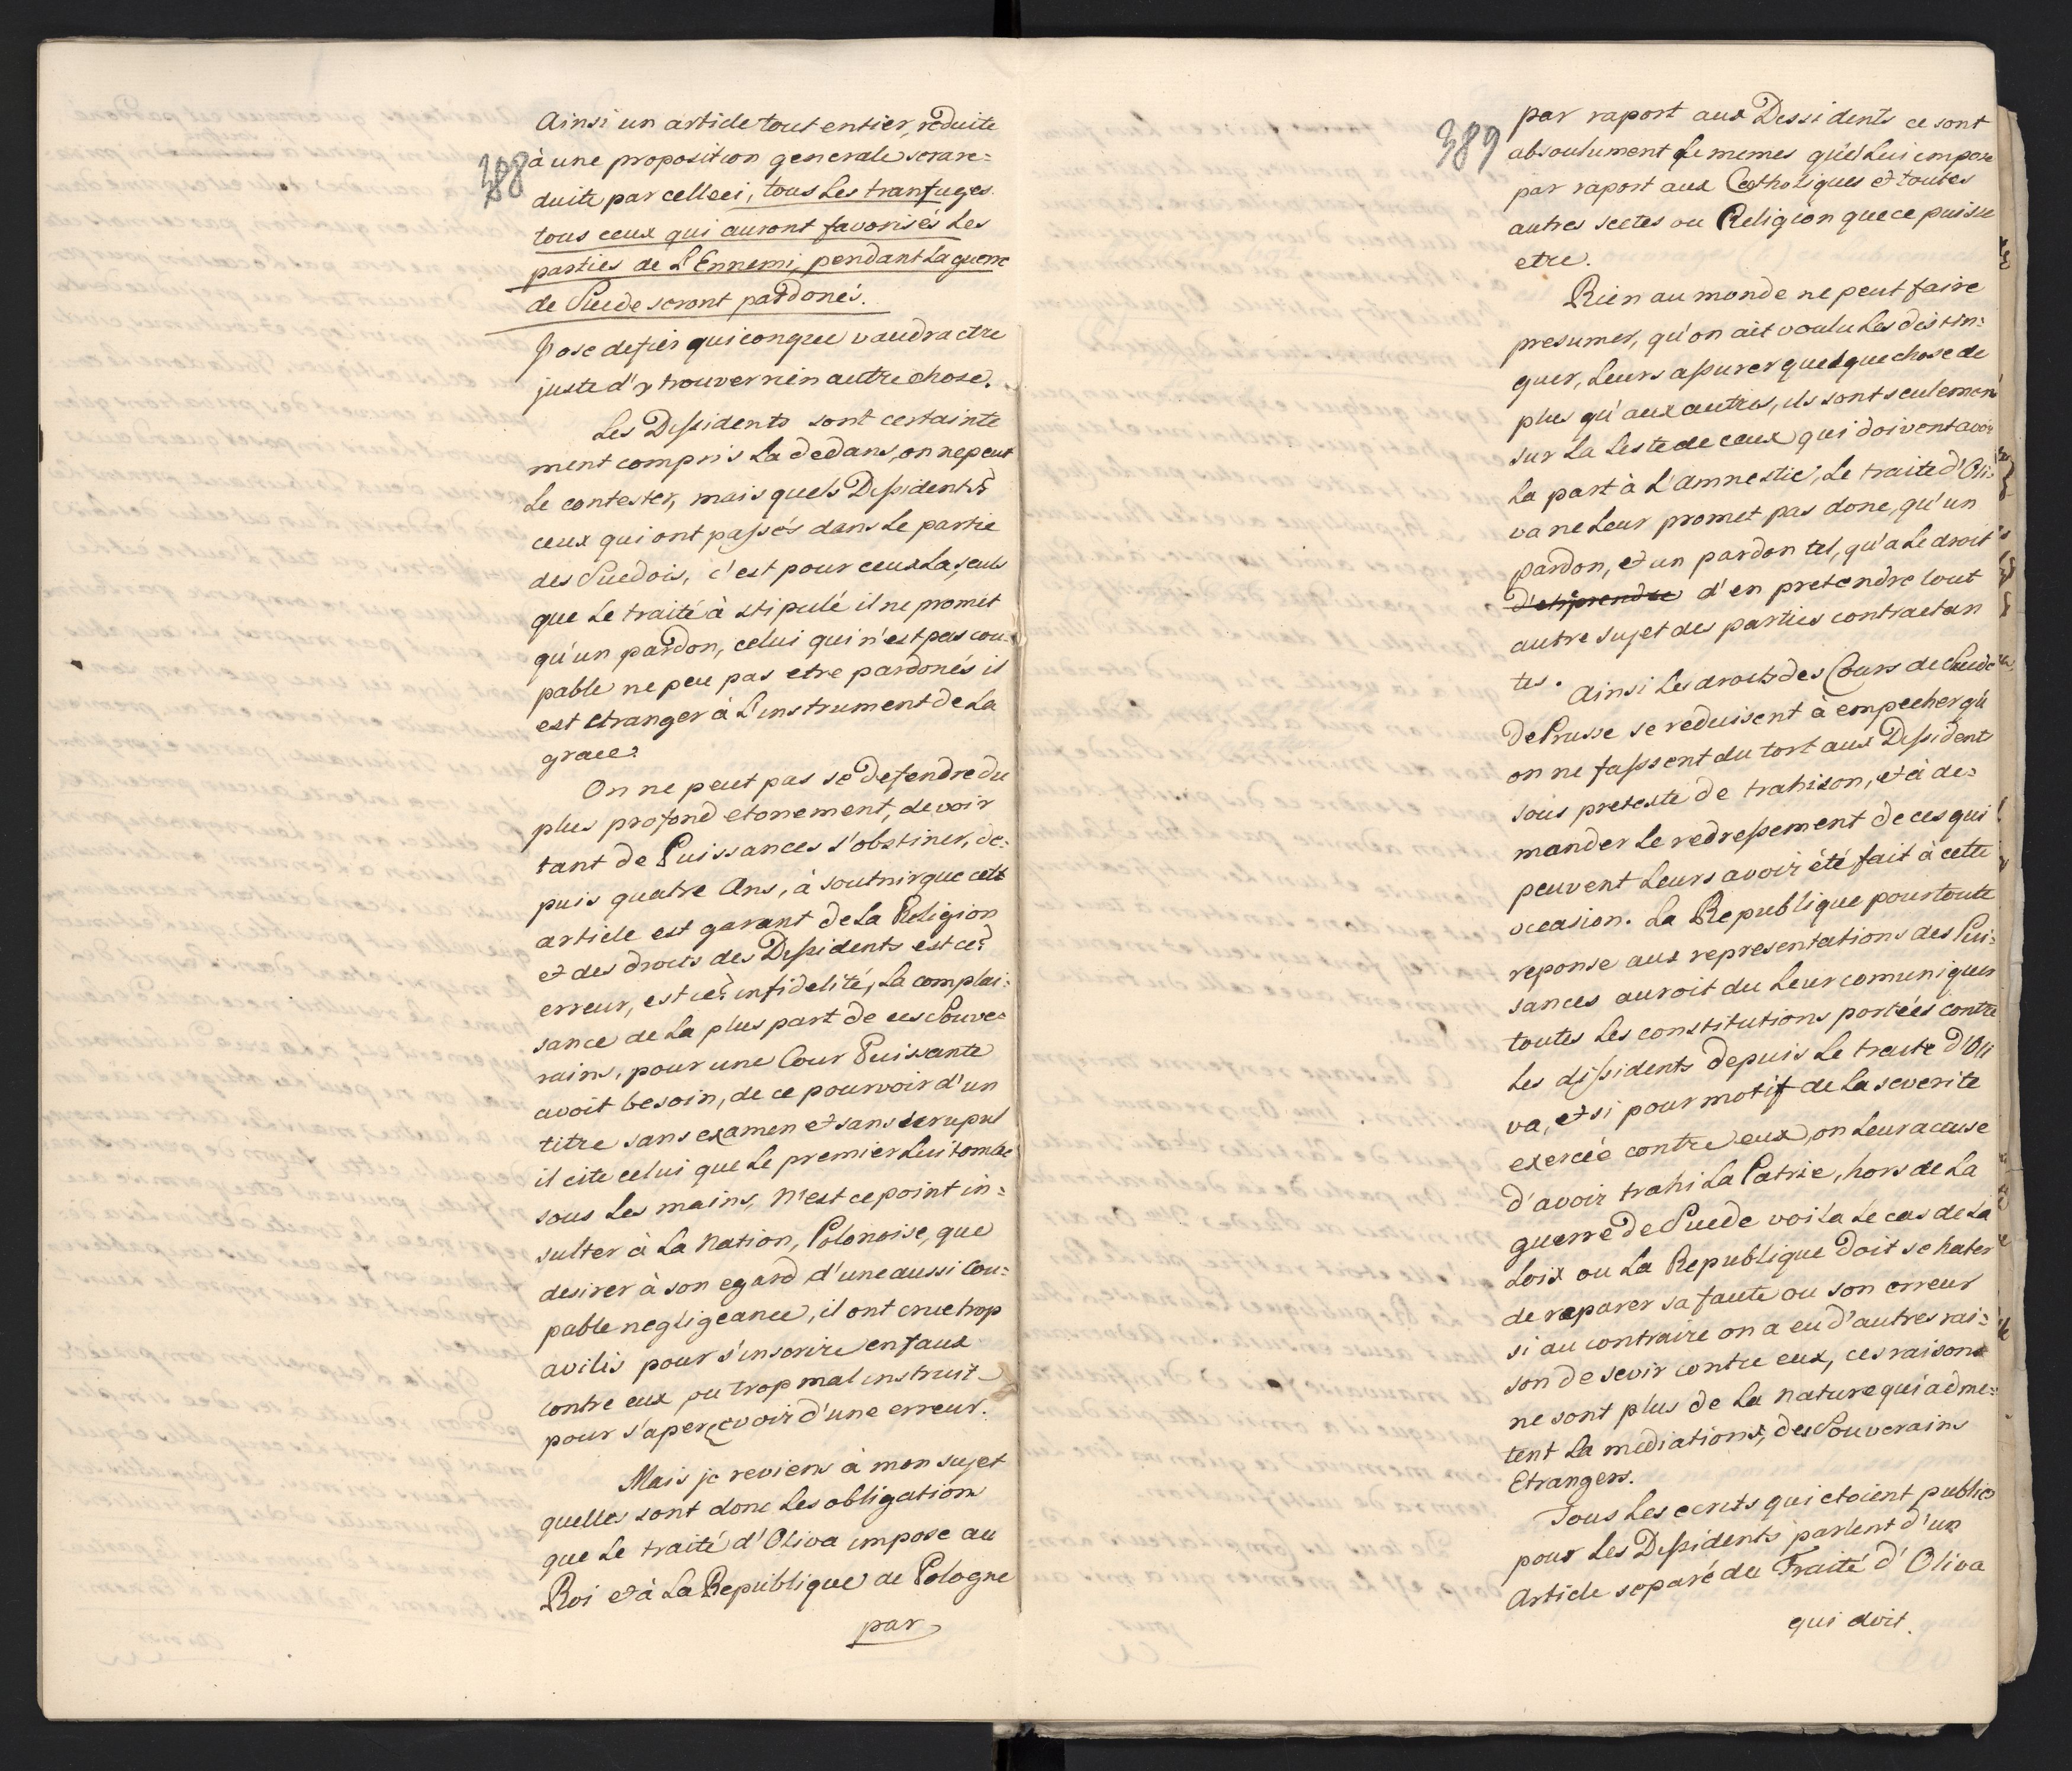 388
Ainsi un article tout entier, reduite
à une proposition generale sera re=
duite par celleci, tous les tranfuges
tous ceux qui auront favorisés les
parties de L'Ennemi, pendant la guerre
de Suede seront pardonés.
J'ose defier quiconque vaudra etre
juste d'y trouver rien autre chose.
Les Dissidents sont certainte
ment compris la dedans, on ne peut
le contester, mais quels Dissidents?
ceux qui ont passés dans le partie
des Suedois, c'est pour ceux la seuls
que le traité à stipulé il ne promet
qu'un pardon, celui qui n'est pas cou=
pable ne peu pas etre pardonés il
est etranger à L'instrument de la
grace.
On ne peut pas se defendre du
plus profond etonement, de voir
tant de Puissances s'obstiner, de=
puis quatre Ans, à soutnir que cett
article est garant de la Religion
et des droits des Dissidents est ce?
erreur, est ce? infidelité, la complai=
sance de la plus part de ces Souve=
rains, pour une Cour Puissante
avoit besoin, de ce pourvoir d'un
titre sans examen et sans scrupul
il cite celui que le premier lui tombe
sous les mains, N'est ce point in=
sulter à la Nation, Polonoise, que
desirer à son egard d'une aussi Cou=
pable negligeance, il ont crue trop
avilis pour s'inscrire en faux
contre eux ou trop mal instruit
pour s'apercevoir d'une erreur.
Mais je reviens à mon sujet
quelles sont donc les obligations
que le traité d'Oliva impose au
Roi et à La Republique de Pologne
par
389
par raport aux Dessidents ce sont
absoulument le memes qu'el lui impose
par raport aux Catholiques et toutes
autres sectes ou Religion que ce puisse
etre.
Rien au monde ne peut faire
presumer, qu'on ait voulu les distin=
guer, leurs assurer quelque chose de
plus qu'aux autres, ils sont seulement
sur la leste de ceux qui doivent avoir
la part à L'amnestie, Le traite d'Oli=
va ne leur promet pas donc, qu'un
pardon, et un pardon tel, qu'a le droit
d'en pretendre tout
autre sujet des parties contractan
tes.
Ainsi les droits des Cours de Suede
de Prusse se reduisent à empecher qu'
on ne fassent du tort aux Dissidents
sous pretexte de trahison, et à de=
mander le redressement de ces qui
peuvent leurs avoir été fait à cette
occasion. La Republique pour toute
reponse aux representations des Pui=
sances auroit du leur comuniquer
toutes les constitutions portées contre
les dissidents depuis le traite d'Oli
va, et si pour motif de la severite
exercée contre eux, on leur accuse
d'avoir trahi la Patrie, hors de la
guerre de Suede voila le cas de la
loix ou la Republique doit se hater
de reparer sa faute ou son erreur
si au contraire on a eu d'autres rai=
son de sevir contre eux, ces raisons
ne sont plus de la nature qui adme=
tent la mediations, des Souverains
Etrangers.
Tous les ecrits qui etoient publics
pour les Dissidents parlent d'un
Article separé du Traité d'Oliva
qui doit